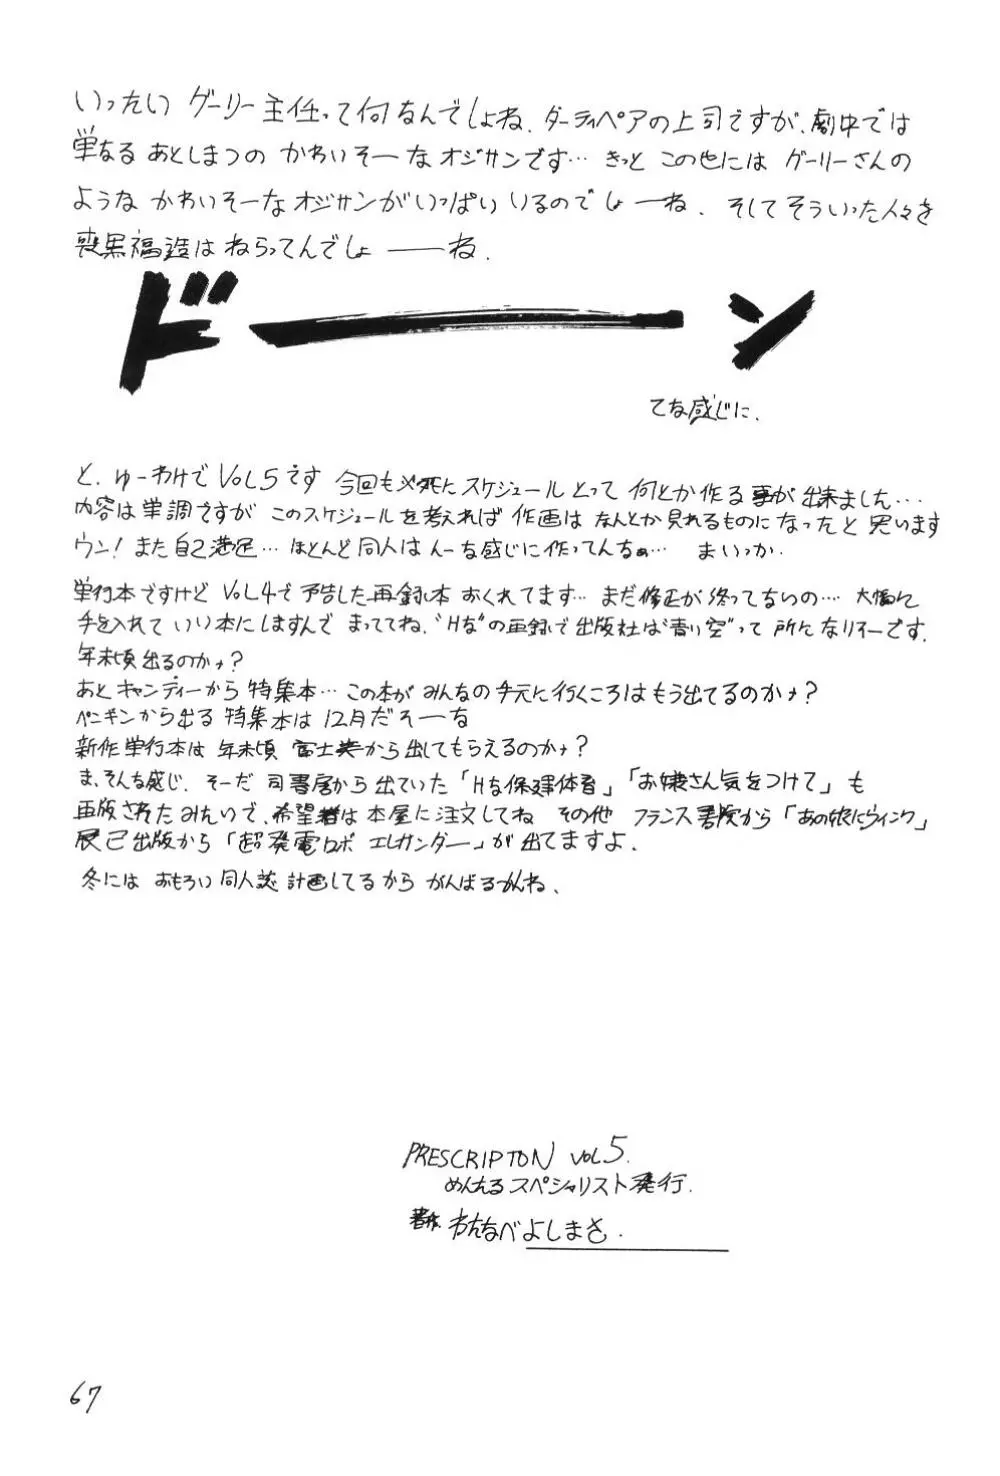 いったい ゲーリー主任って何なんでしょね、ダーティペアの上司ですが、劇中では
単なる あとしまつの かわいそーな オジサンです… きっと この世には ゲーリーさんの
ような かわいそーな オジサンが いっぱい いるのでしょーね、そして そういった人々を
喪黒福造は ねらってんでしょ――ね.
ドーン
てな感じに、
と、ゆーわけで VOL5です 今回も必死に スケジュール とって 何とか作る事が出来ました…
内容は単調ですが このスケジュールを考えれば 作画は なんとか見れるものになったと 思います
ウン! また自己満足… ほとんど同人は んーな感じに作ってんなぁ… まいっか.
単行本ですけど VOL4で予告した再録本 おくれてます… まだ修正が終ってないの… 大幅に
手を入れて いい本にしますんで まっててね、"Hな"の再録で出版社は"青い空"って 所になりそーです.
年末頃出るのかナ?
あと キャンディーから 特集本… この本が みんなの手元に行くころは もう出てるのかナ?
ペンギンから出る 特集本は 12月だそーな
新作単行本は 年末頃 富士美から出してもらえるのかナ?
ま、そんな感じ. そーだ 司書房から出ていた「Hな保健体育」「お嬢さん気をつけて」も
再版されたみたいで、希望者は本屋に注文してね その他 フランス書院から「あの娘にウィンク」
辰己出版から「超発電ロボ エレサンダー」が出てますよ.
冬には おもろい同人誌計画してるから がんばるかんね、
PRESCRIPTON VOL5.
めんたるスペシャリスト発行.
著作. わたなべよしまさ.
67